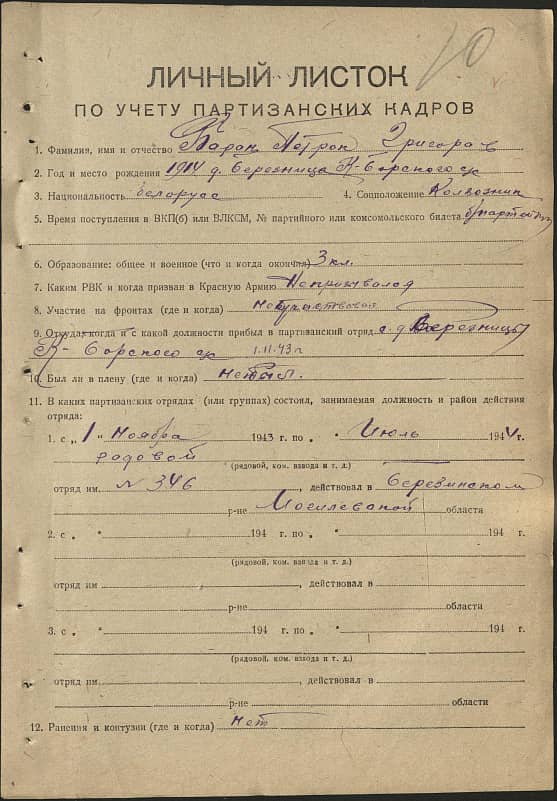 10
ЛИЧНЫЙ ЛИСТОК
ПО УЧЕТУ ПАРТИЗАНСКИХ КАДРОВ
1. Фамилия, имя и отчество
2. Год и место рождения 1914 д. Березница
3. Национальность белорус 4. Соцположение Колхозник
5. Время поступления в ВКП(б) или ВЛКСМ, № партийного или комсомольского билета
6. Образование: общее и военное (что и когда окончил) 3 кл.
7. Каким РВК и когда призван в Красную Армию
8. Участие на фронтах (где и когда)
9. Откуда, когда и с какой должности прибыл в партизанский отряд с. д. Березницы
Борского с/с 1.11.43 г.
10. Был ли в плену (где и когда)
11. В каких партизанских отрядах (или группах) состоял, занимаемая должность и район действия
отряда:
1. с „ 1 " Ноября 1943 г. по „ " Июль 1944 г.
рядовой
(рядовой, ком. взвода и т. д.)
отряд им. № 346 , действовал в Березинском
р-не Могилевской области
2. с „ " 194 г. по „ " 194 г.
(рядовой, ком. взвода и т. д.)
отряд им , действовал в
р-не области
3. с „ " 194 г. по „ " 194 г.
(рядовой, ком. взвода и т. д.)
отряд им. , действовал в
р-не области
12. Ранения и контузии (где и когда) нет